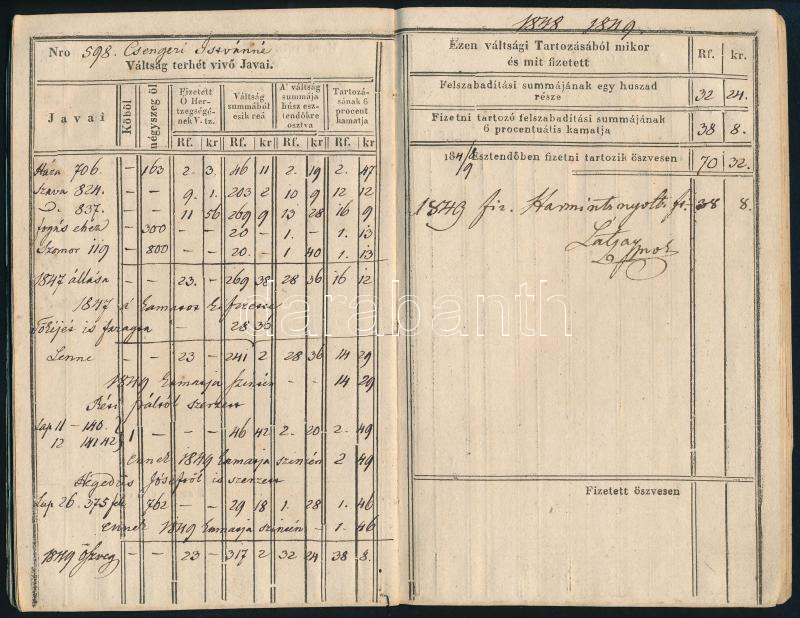 Nro 598. Csengeri Istvánné
Váltság terhét vivő Javai.
Javai
Köből
négyszeg öl
Fizetett Ő Hertzegségének V. tz.
Váltság summából esik reá
A' váltság summája húsz esztendőkre osztva
Tartozásának 6 procent kamatja
Rf. kr Rf. kr Rf. kr Rf. kr
706. – 163 2. 3. 46 11 2. 19 2. 47
Szava 824. – – 9. 1. 203 2 10 9 12 12
D. 837. 11 56 269 9 13 28 16 9
– 300 – 20 – 1. – 1. 13
Szomor 119 – 800 – 20. – 1 40 1. 13
1847 állása – 23. – 269 38 28 36 16 12
1847 a
is – 28 36
Lenne – – 23 – 241 2 28 36 14 29
1849 Kamatja színén – – 14 29
szerzett
Lap 11 – 140.
12 141 42 1 – – – 46 42 2. 20 2. 49
ennek 1849 Kamatja színén 2 49
Hegedüs Jóseftől is szerzett
Lap 26. 375 762 – – 29 18 1. 28 1. 46
ennek 1849 Kamatja színén – 1. 46
1849 – 23 – 317 2 32 24 38 8.
1848 1849.
Ezen váltsági Tartozásából mikor és mit fizetett
Rf. kr.
Felszabadítási summájának egy huszad része 32 24.
Fizetni tartozó felszabadítási summájának 6 procentuális kamatja 38 8.
184 8/9 Esztendőben fizetni tartozik öszvesen 70 32.
1849 fiz. Harmintznyoltz fr. 38 8.
Fizetett öszvesen
darabanth